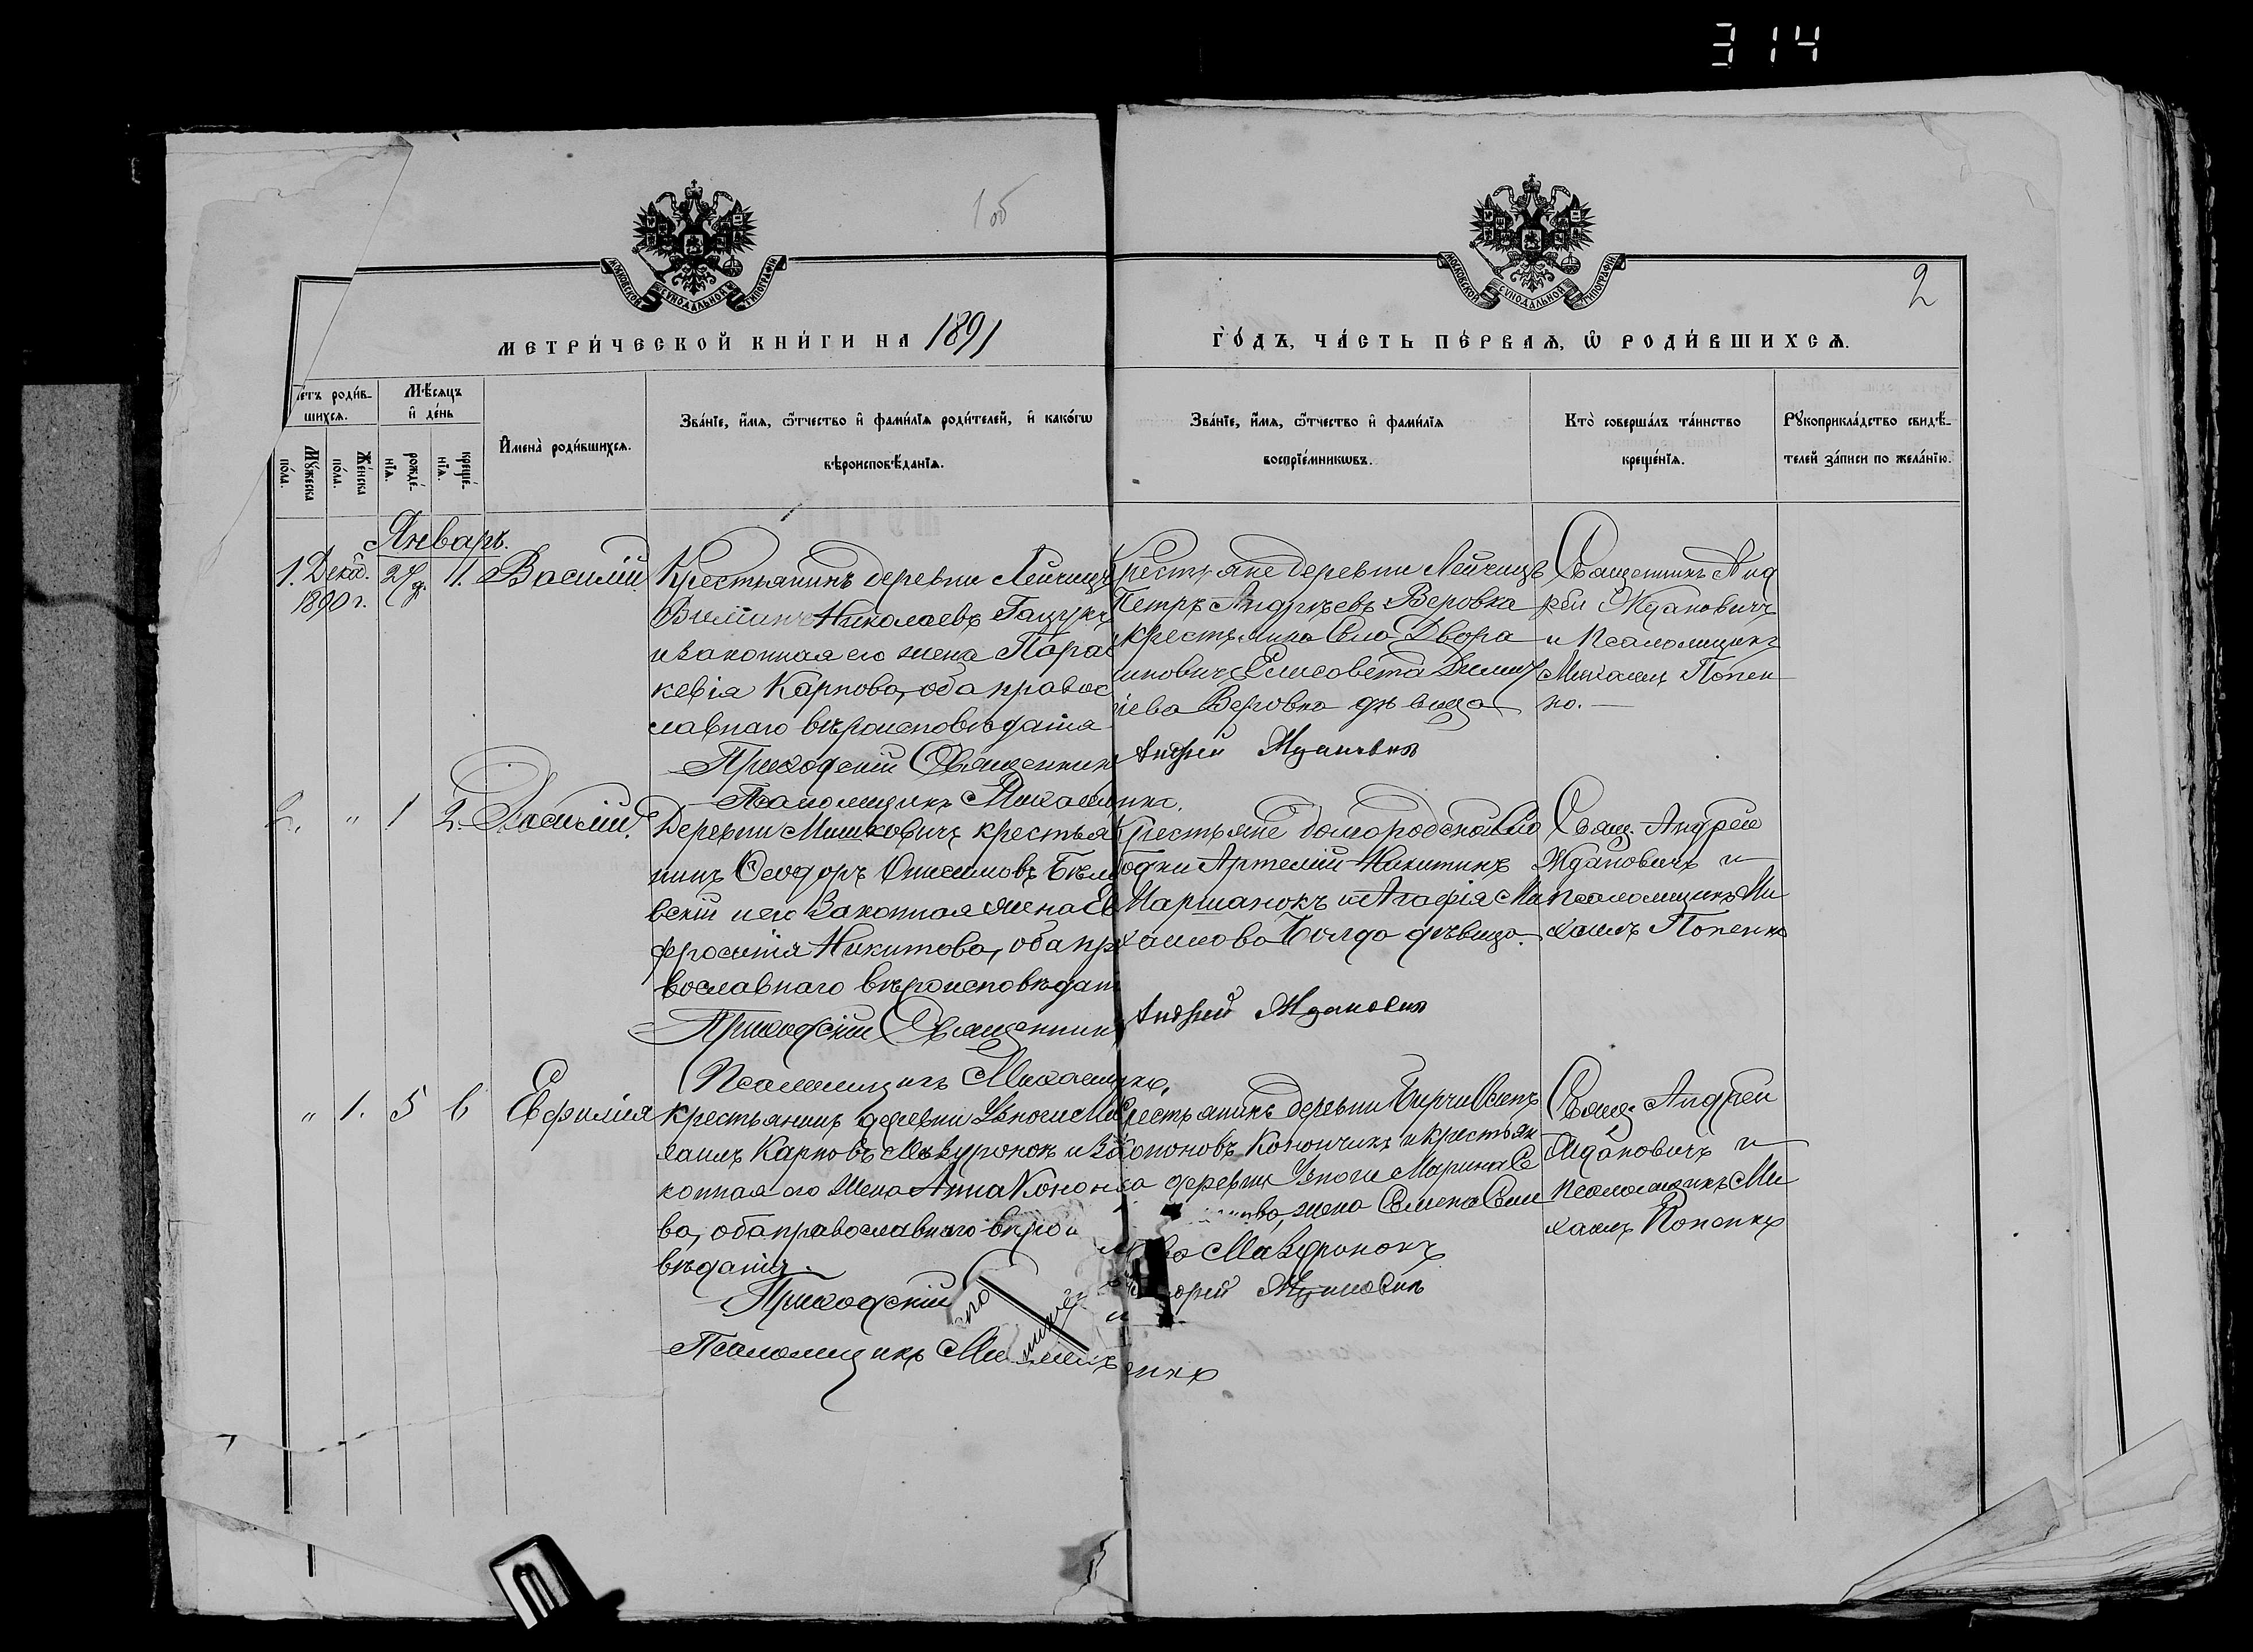 314
1об
2
МОСКОВСКОЙ СѴНОДАЛЬНОЙ ТИПОГРАФІИ
МОСКОВСКОЙ СѴНОДАЛЬНОЙ ТИПОГРАФІИ
МЕТРИ́ЧЕСКОЙ КНИ́ГИ НА 1891
ГО́ДЪ, ЧА́СТЬ ПЕ́РВАѦ, Ѡ҆ РОДИ́ВШИХСѦ.
етъ роди́в-
шихсѧ.
Мѣ́сѧцъ
и҆ де́нь
Мꙋ́жеска
по́ла.
Же́нска
по́ла.
рожде́-
нїѧ.
креще́-
нїѧ.
И҆мена̀ роди́вшихсѧ.
Зва́нїе, и҆́мѧ, ѻ҆́тчество и҆ фами́лїѧ роди́телей, и҆ како́гѡ
вѣроисповѣ́данїѧ.
Зва́нїе, и҆́мѧ, ѻ҆́тчество и҆ фами́лїѧ
воспрїе́мникѡвъ.
Кто̀ соверша́лъ та́инство
креще́нїѧ.
Рꙋкоприкла́дство свидѣ́-
телей за́писи по жела́нїю.
Январь.
1. Декаб. 1890 г.
11. Василій
Крестьянинъ деревни Лейчицъ
Николаевъ Гацукъ
и законная его жена Парас
кевія Карпова, оба правос
лавнаго вѣроисповѣданія
Приходскій Священник
Псаломщикъ Михаил
Крестьяне деревни Лейчицъ
Петръ Андреевъ Веровка
Двора
Елисавета
Веровка дѣвица
Андрей Жданович
Священникъ Анд
рей Ждановичъ
и Псаломщикъ
Михаилъ Попен
ко.
2. " 1 2. Василій.
Деревни Мишковичъ крестья
нинъ Ѳеодоръ Онисимовъ Бѣля
вскій и его законная жена Ев
фросинія Никитова, оба пра
вославнаго вѣроисповѣдан
Приходскій Священник
Псаломщикъ Михаил
Крестьяне Сло
бодки Артемій Никитинъ
Маршанокъ и Агафія Ми
хаилова дѣвица.
Андрей Жданович
Свящ. Андрей
Ждановичъ и
псаломщикъ Ми
хаилъ Попенко
" 1. 5 6 Евфимія
крестьянинъ деревни Узноги Ми
хаилъ Карповъ Мазуронок и за
конная его жена Анна Конон
ва, оба православнаго вѣрои
вѣданія.
Приходскій
Псаломщикъ Ми
Крестьянинъ деревни Осипъ
Кононовъ и крестьян
ка деревни Узноги Марина
жена Семена
Мазуронокъ
Жданович
Свящ. Андрей
Ждановичъ и
Псаломщикъ Ми
хаилъ Попенко